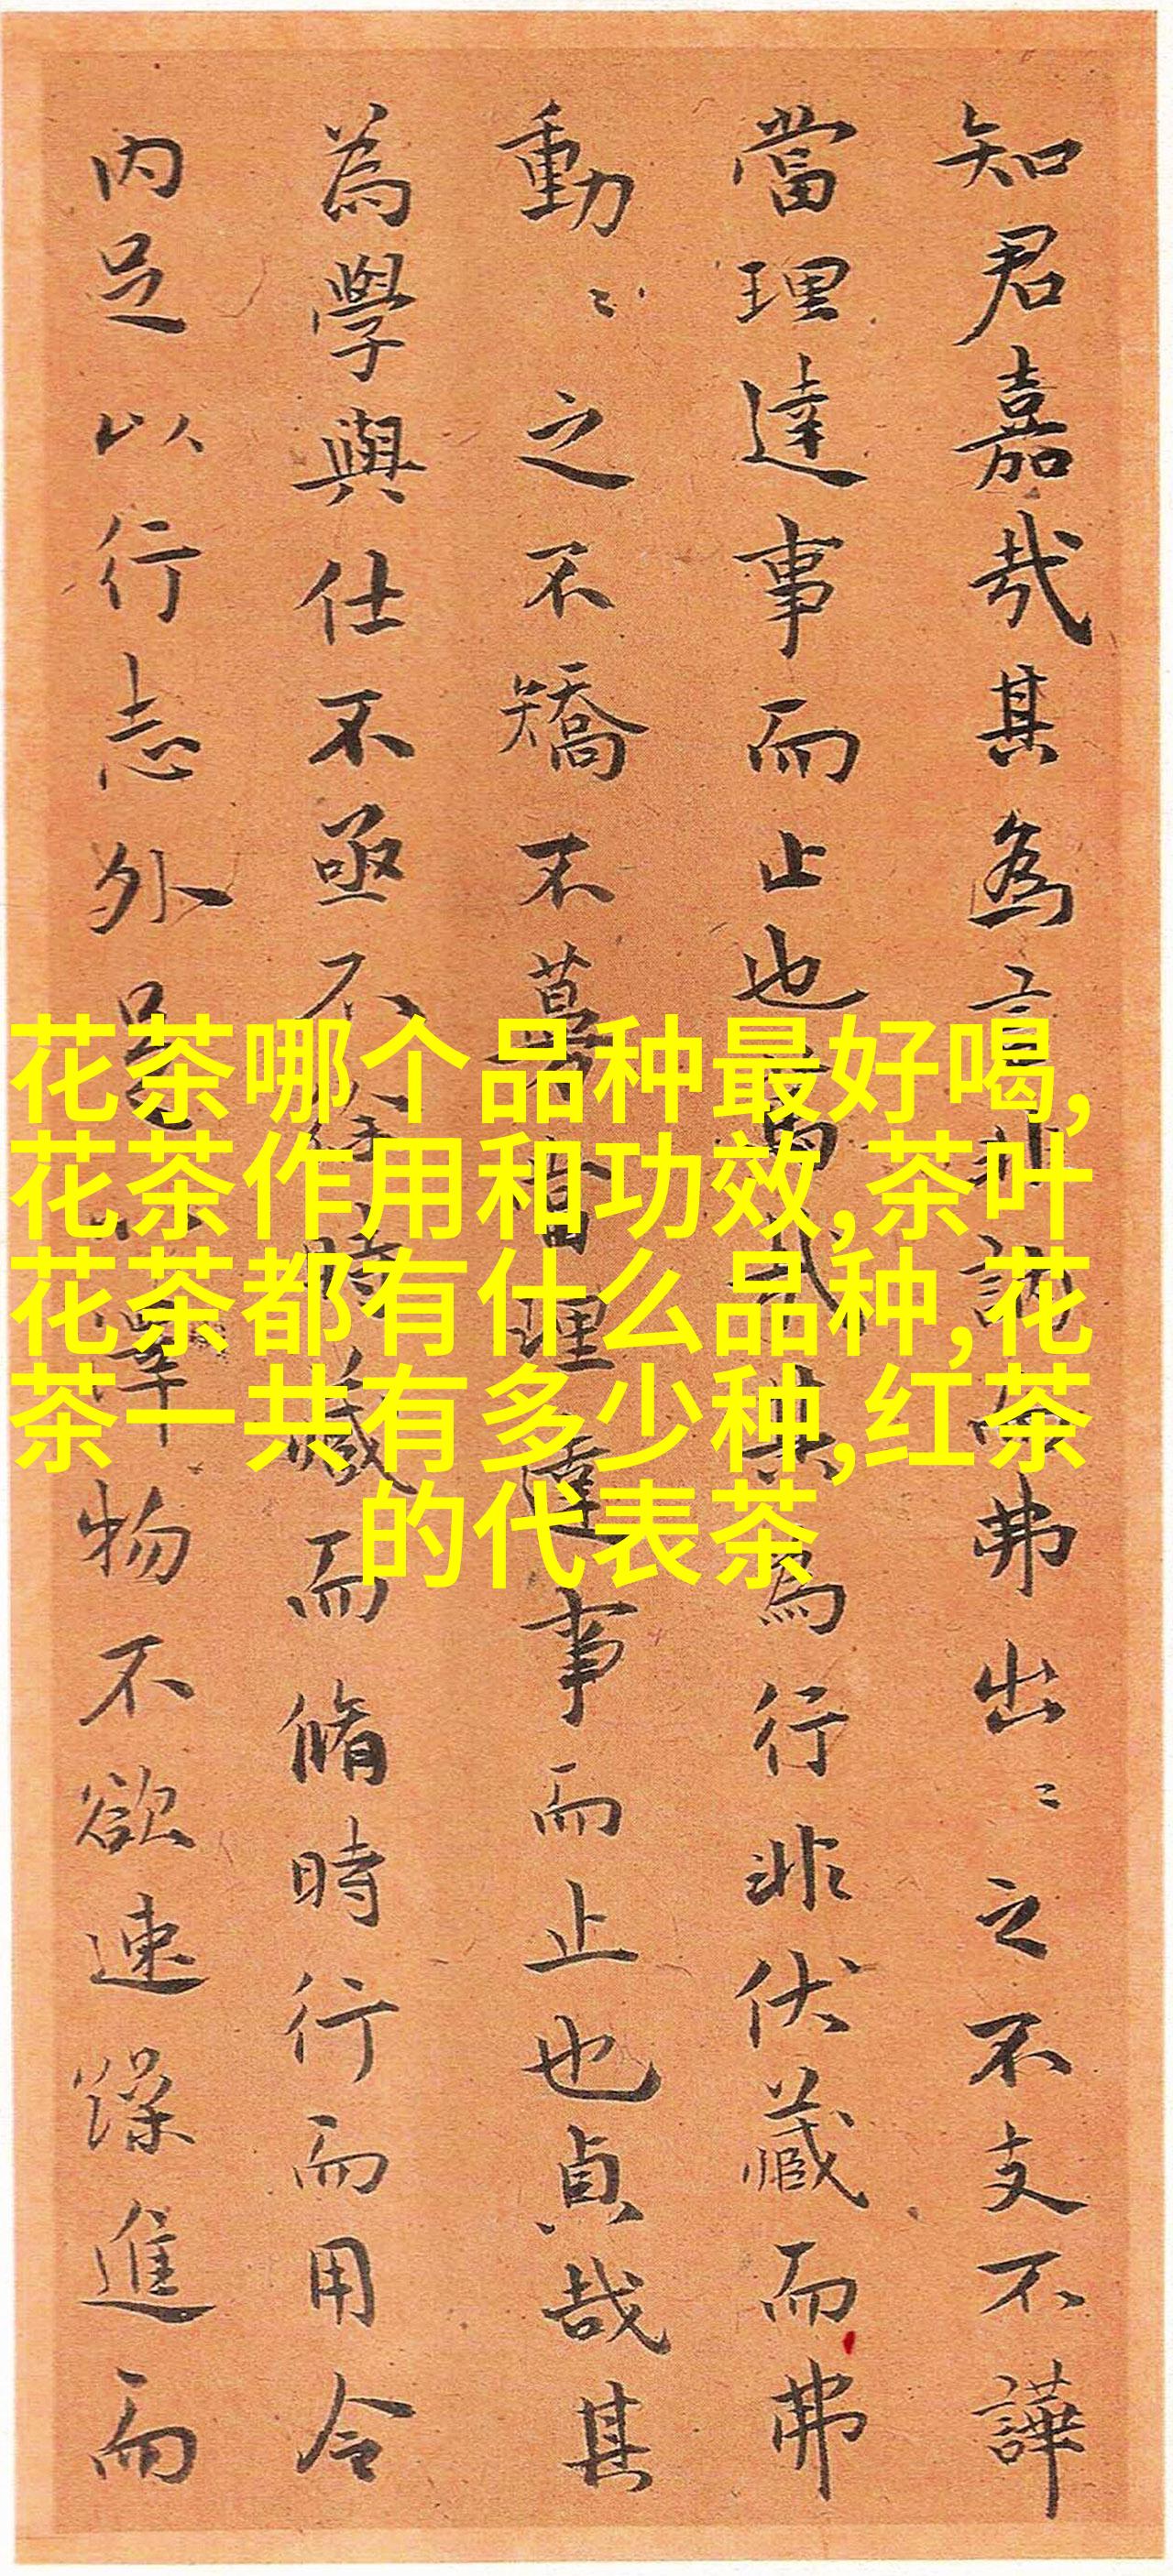 知君嘉哉其為言非訥而弗出〻之不支不譁
當理達事而止也嘉哉其為行非伏藏而弗
動〻之不矯不理達事而止也貞哉其
為學與仕不亟不徐時藏而脩時行而用令
内足以行志外足以澤物不欲速躁進而
花茶哪个品种最好喝,
花茶作用和功效,茶叶
花茶都有什么品种,花
茶一共有多少种,红茶
的代表茶